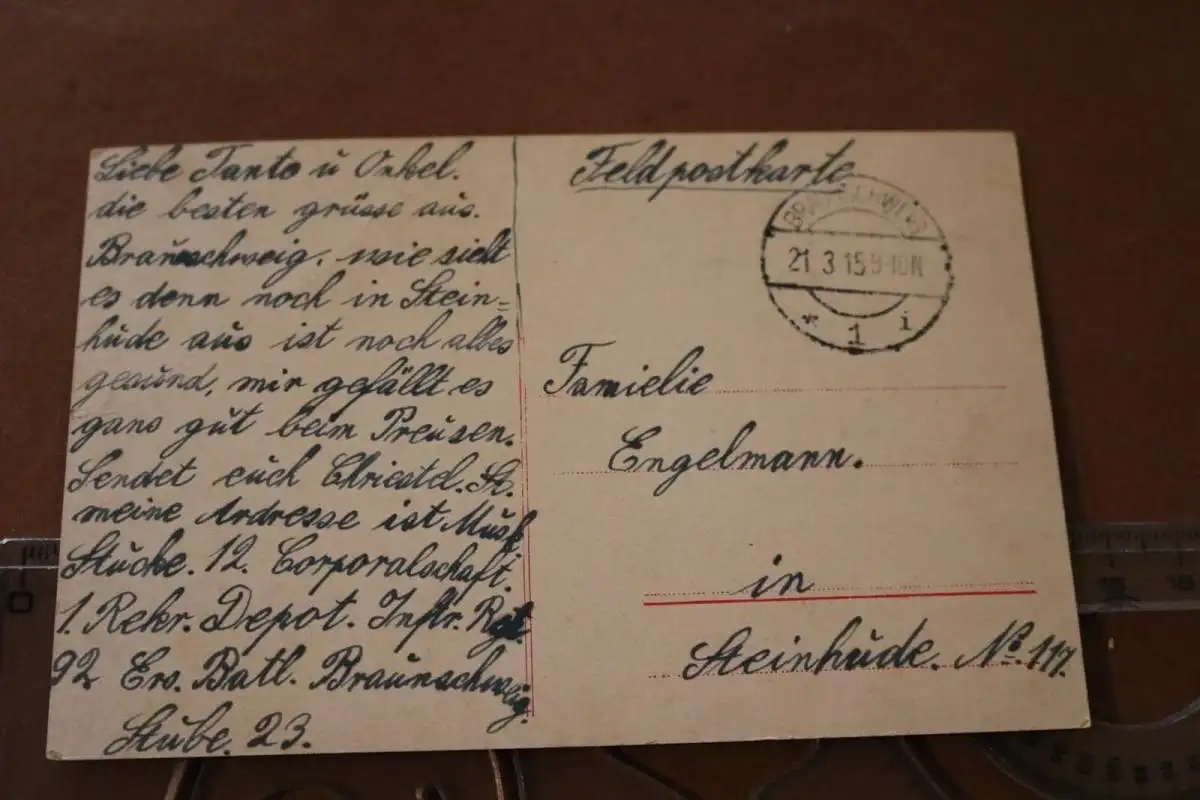 Liebe Tante ü Onkel.
die besten grüsse aüs.
Braünschweig. wie sieht
es denn noch in Stein=
hüde aüs ist noch alles
gesünd, mir gefällt es
gans güt beim Preüsen.
Sendet eüch Chriestel. St.
meine Ardresse ist Müsk
Stücke. 12. Corporalschaft.
1. Rekr. Depot. Inftr. Rgt.
92 Ers. Batl. Braünschweig.
Stübe. 23.
Feldpostkarte
BRAUNSCHWEIG
21 3 15 9-10N
* 1 i
Famielie
Engelmann.
in
Steinhüde. No. 117.